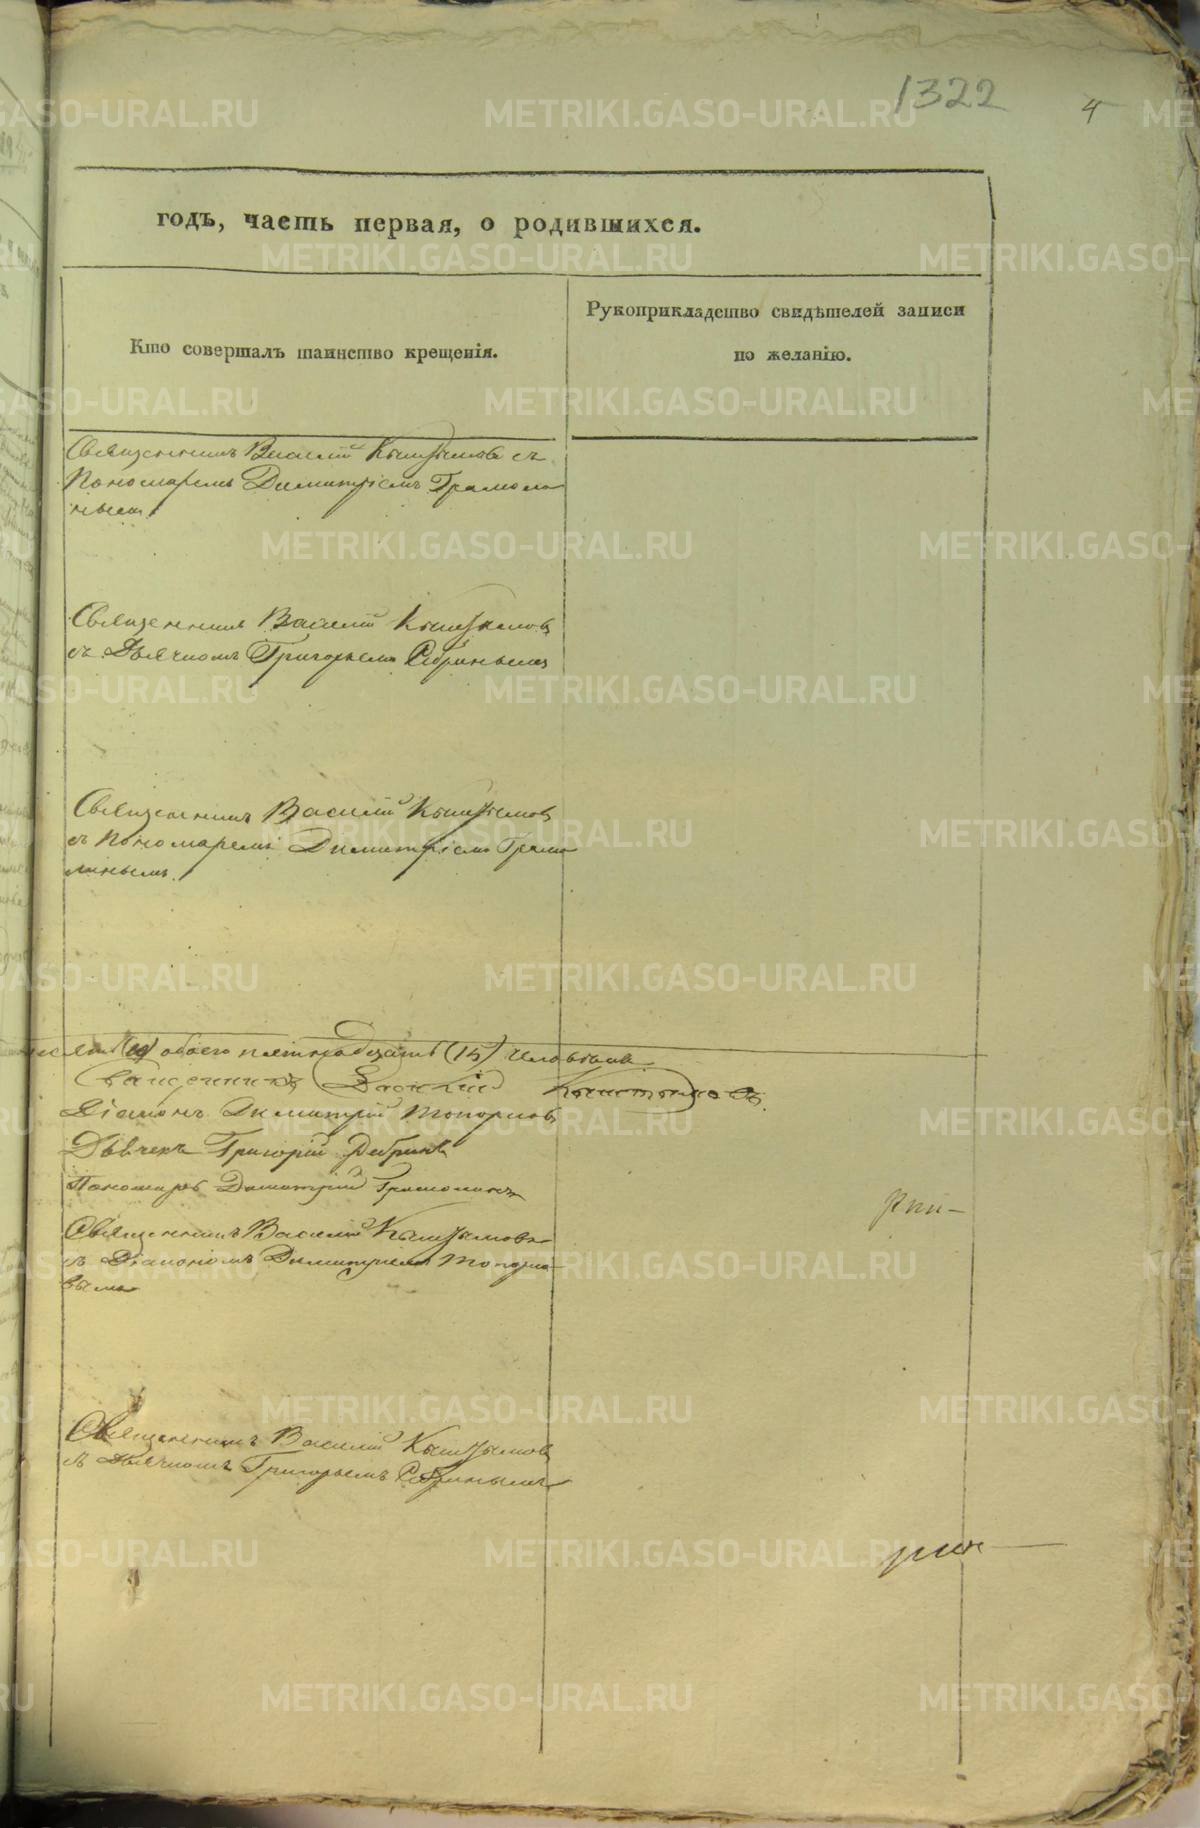 1322
4
годъ, часть первая, о родившихся.
Кто совершалъ таинство крещенія.
Рукоприкладство свидѣтелей записи
по желанію.
Священникъ Василій Кыштымовъ съ
Пономаремъ Димитріемъ Грамоли
нымъ.
Священникъ Василій Кыштымовъ
съ Дьячкомъ Григорьемъ Ребринымъ
Священникъ Василій Кыштымовъ
съ Пономаремъ Димитріемъ Грамо
линымъ.
обоего пятнадцать (15) человѣкъ
Священникъ Василій Кыштымовъ.
Діаконъ Димитрій Топорковъ
Дьячекъ Григорій Ребринъ
Пономарь Димитрій Грамолинъ
Священникъ Василій Кыштымовъ
съ Діакономъ Димитріемъ Топорко-
вымъ
Священникъ Василій Кыштымовъ
съ Дьячкомъ Григорьемъ Ребринымъ
METRIKI.GASO-URAL.RU